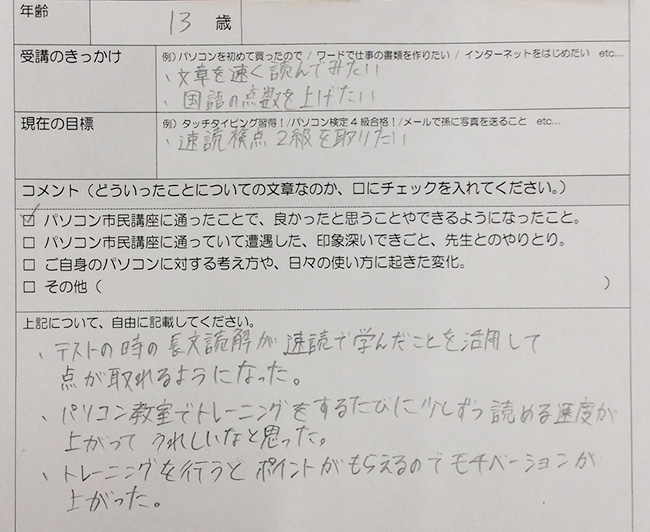 年齢 13 歳
受講のきっかけ 例）パソコンを初めて買ったので / ワードで仕事の書類を作りたい / インターネットをはじめたい etc...
、文章を速く読んでみたい
、国語の点数を上げたい
現在の目標 例）タッチタイピング習得！/パソコン検定4級合格！/メールで孫に写真を送ること etc...
、速読検点2級を取りたい
コメント（どういったことについての文章なのか、口にチェックを入れてください。）
☑ パソコン市民講座に通ったことで、良かったと思うことやできるようになったこと。
□ パソコン市民講座に通っていて遭遇した、印象深いできごと、先生とのやりとり。
□ ご自身のパソコンに対する考え方や、日々の使い方に起きた変化。
□ その他（ ）
上記について、自由に記載してください。
、テストの時の長文読解が速読で学んだことを活用して
点が取れるようになった。
、パソコン教室でトレーニングをするたびに少しずつ読める速度が
上がってうれしいなと思った。
、トレーニングを行うとポイントがもらえるのでモチベーションが
上がった。